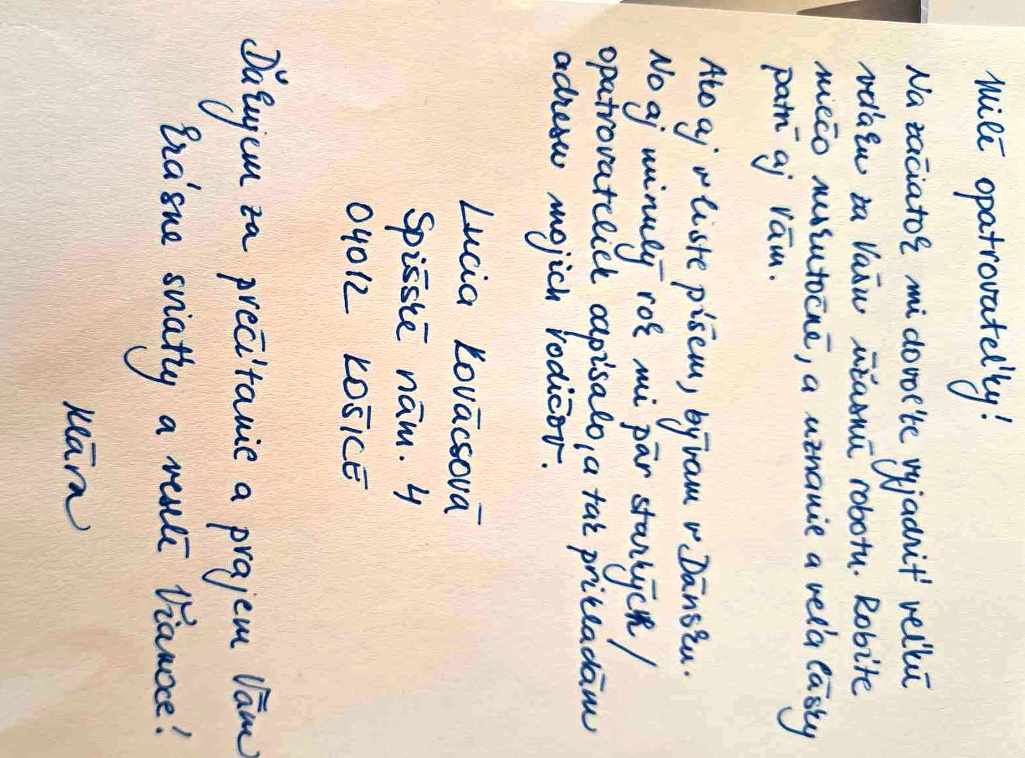 Milé opatrovateľky!
Na začiatok mi dovoľte vyjadriť veľkú
vďaku za Vašu úžasnú robotu. Robíte
niečo neskutočné, a uznanie a veľa lásky
patrí aj Vám.
Ako aj v liste píšem, bývam v Dánsku.
No aj minulý rok mi pár starkých/
opatrovateliek odpísalo, a tak prikladám
adresu mojich rodičov.
Lucia Kovácsová
Spišské nám. 4
04012 KOŠICE
Ďakujem za prečítanie a prajem Vám
krásne sviatky a veselé Vianoce!
Klára